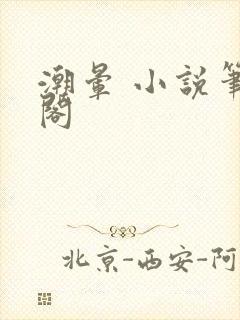 潮暈 小說筆
閣
北京-西安-阿